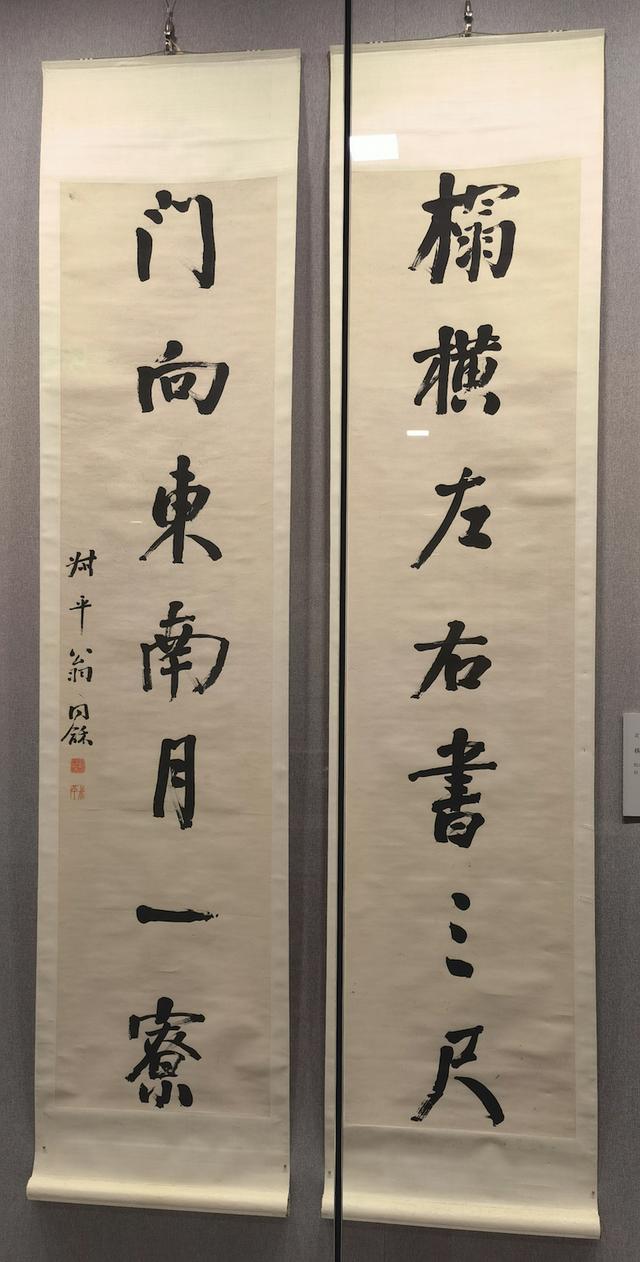 榻橫左右書三尺
门向東南月一寮
叔平翁同龢